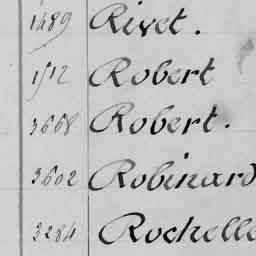 1489 Rivet.
1512 Robert
3668 Robert.
3602 Robinard
3284 Rochelle